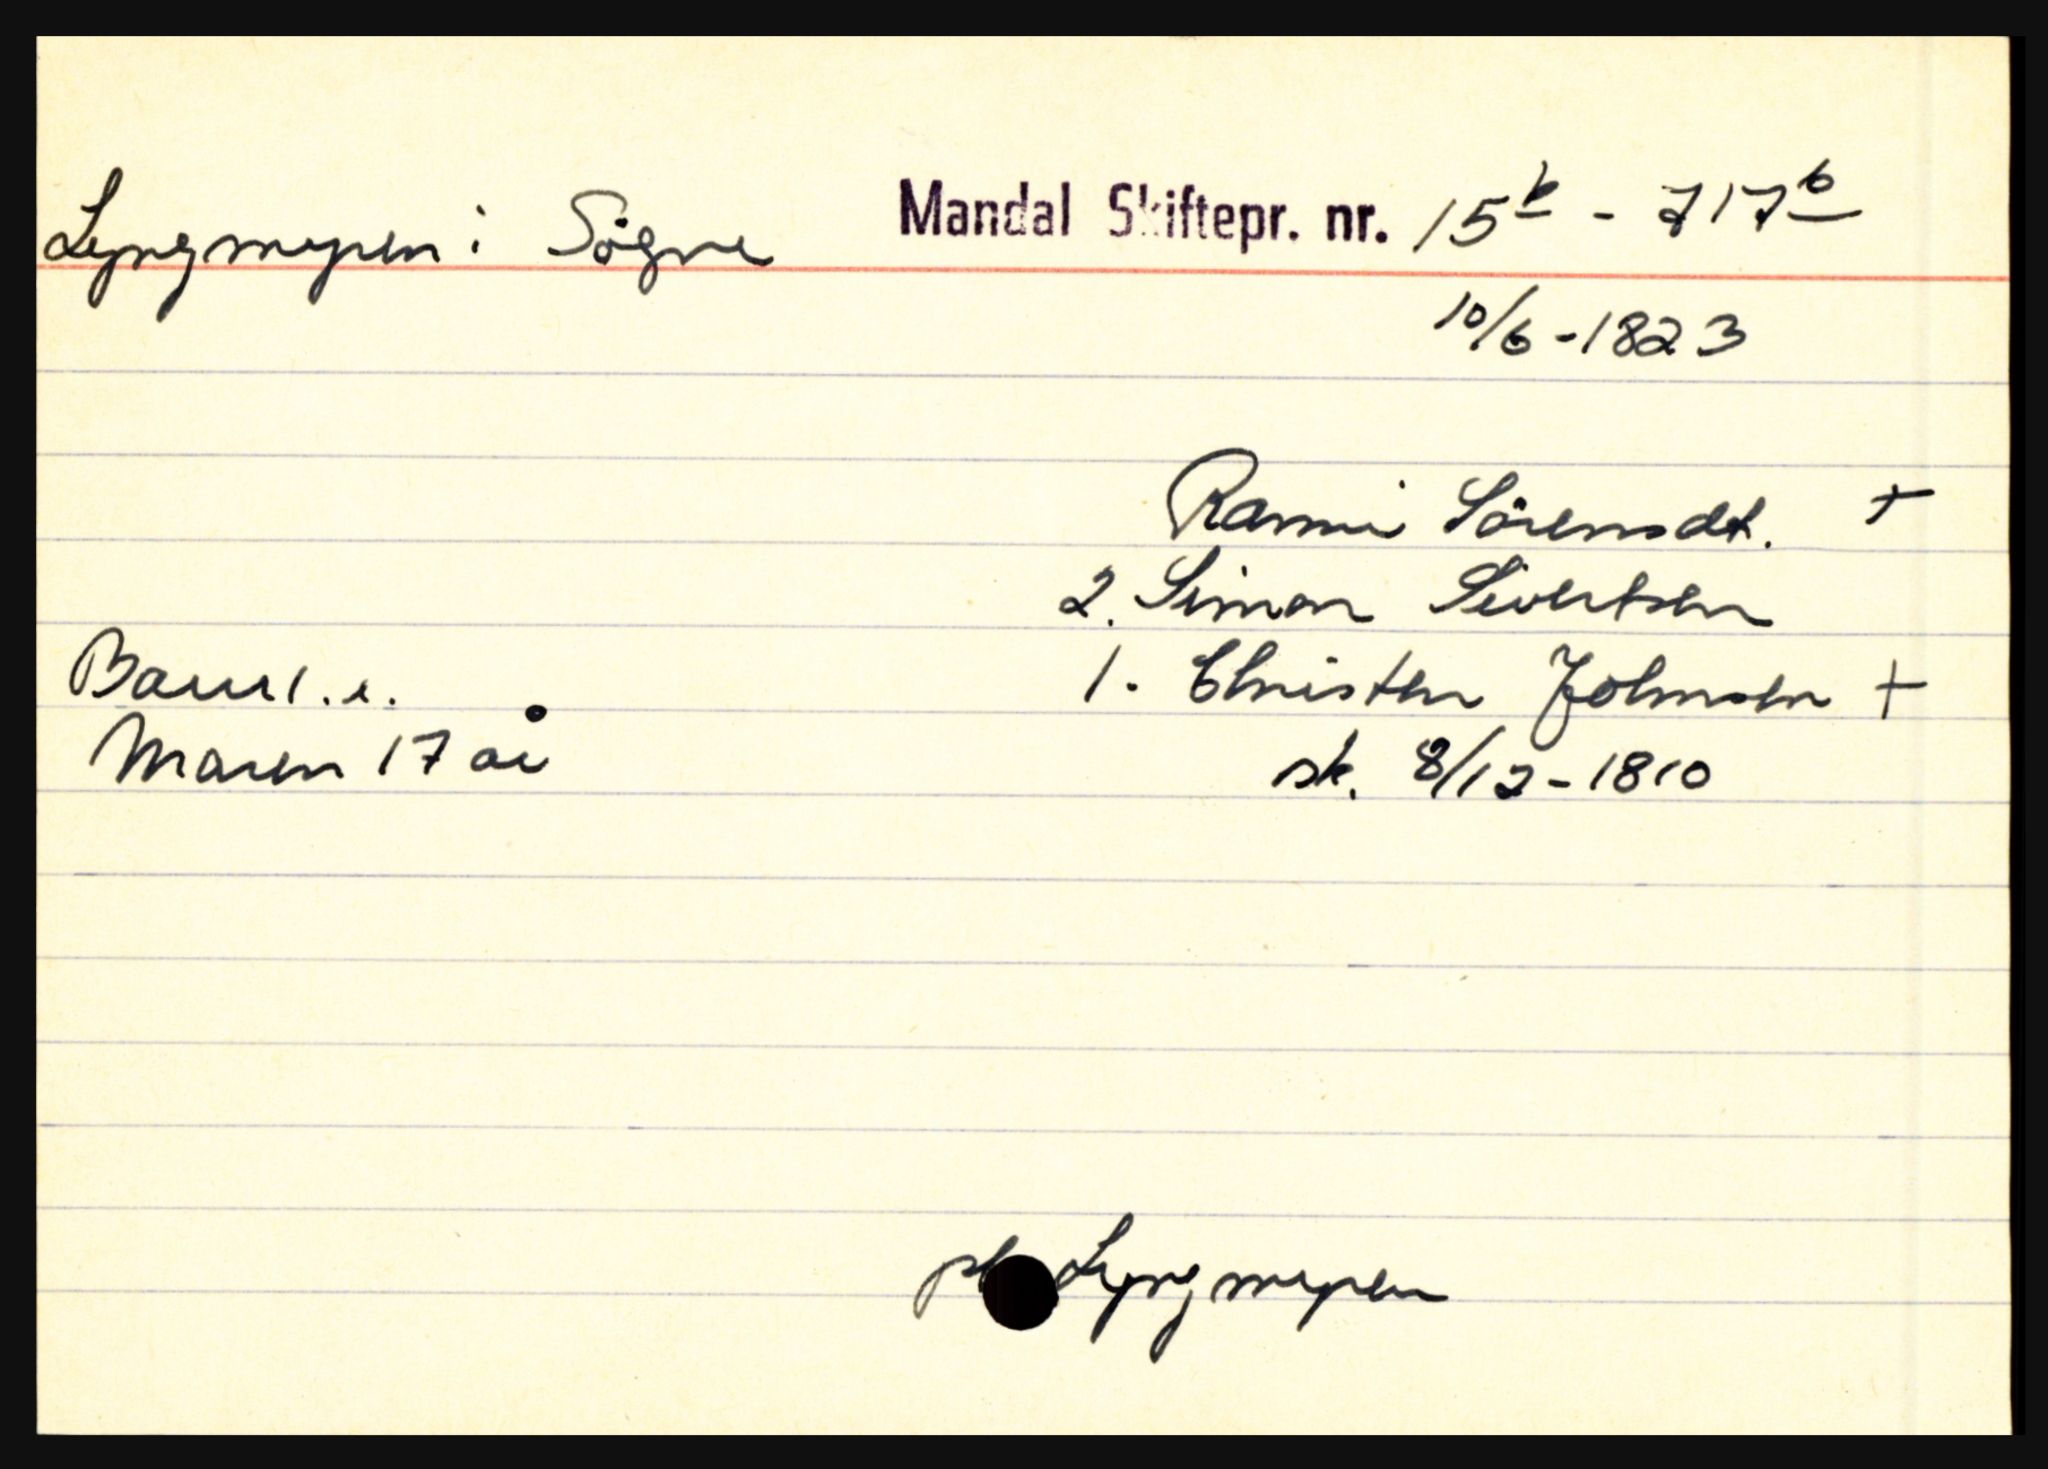 Lyngmyren i Søgne Mandal Skiftepr. nr. 15b - 717b
10/6 - 1823
Rammi Sørensdt. +
2. Simon Sivertsen
Barn 1. e. 1. Christen Johnsen +
Maren 17 år sk. 8/12 - 1810
pl Lyngmyren